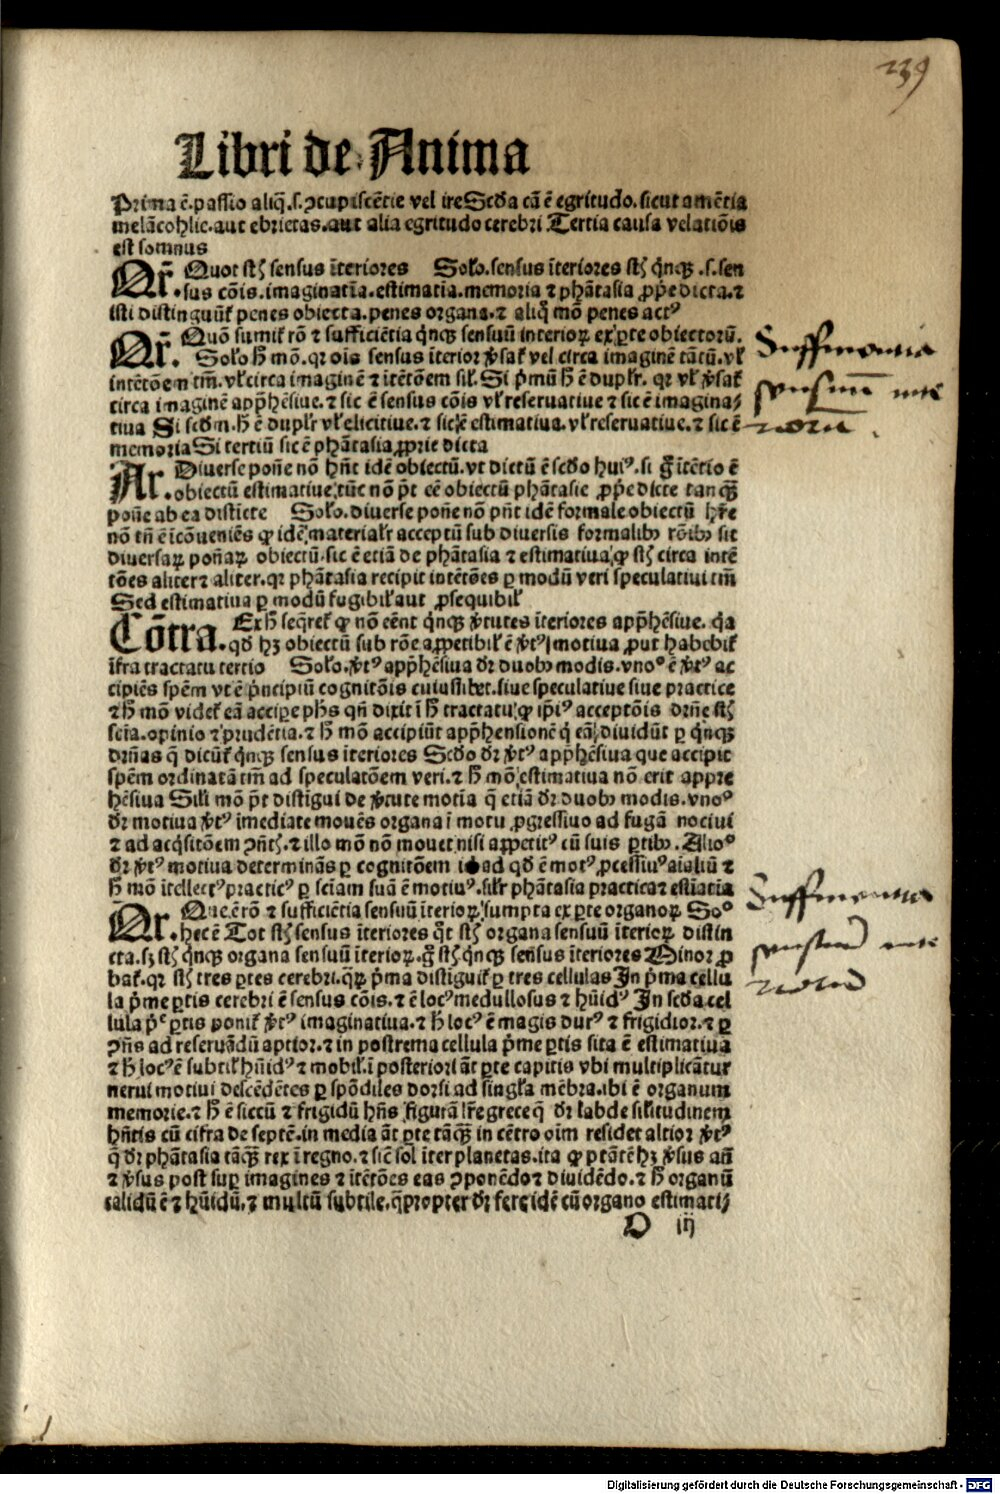 239
Libri de Anima
Prima ē.passio aliq̄.s.ↄcupiscētie vel ire Scd̄a cā ē egritudo.sicut amētia
melācoh̄lic.aut ebrietas.aut alia egritudo cerebri Tertia causa velatiōis
est somnus
Qr̄. Quot st̄ sensus īteriores Solo.sensus īteriores st̄ q̇nqꝫ .s.sen
sus cōis.imaginatīa.estimatīa.memoria ⁊ phātasia ꝓp̄e dicta.⁊
isti distinguūt penes obiecta.penes organa.⁊ aliq̇ mō penes actꝰ
Qr̄. Quō sumit̄ rō ⁊ sufficiētia q̇nqꝫ sensuū interioꝝ ex ꝑte obiectorū.
Solo h̄ mō.qꝛ ois sensus īterior v̓sat̄ vel circa imaginē tātū.vl̄
intētōem tm̄.vl̄ circa imaginē ⁊ ītētōem sil̄.Si p̓mū h̄ ē duplr̄.qꝛ vl̄ v̓sat̄
circa imaginē app̄hēsiue.⁊ sic ē sensus cōis vl̄ reseruatiue ⁊ sic ē imagina⸗
tiua Si scd̄m.h̄ ē duplr̄ vl̄ elicitiue.⁊ sic ē estimatiua.vl̄ reseruatiue.⁊ sic ē
memoria Si tertiū sic ē phātasia ꝓprie dicta
Ar. Diuerse poñe nō hñt idē obiectū.vt dictū ē scd̄o huiꝰ.si g̊ ītētio ē
obiectū estimatiue,tūc nō p̄t eē obiectū phātasie ꝓp̄e dicte tanqꝫ
poñe ab ea disticte Solo.diuerse poñe nō pñt idē formale obiectū hr̄e
nō tñ ē icōueniēs ꝙ idē materialr̄ acceptū sub diuersis formalibꝫ rōibꝫ sit
diuersaꝝ poñaꝝ obiectū.sic ē etiā de phātasia ⁊ estimatiua,ꝙ st̄ circa intē
tōes aliter ⁊ aliter.qꝛ phātasia recipit intētōes ꝑ modū veri speculatiui tm̄
Sed estimatiua ꝑ modū fugibil̄ aut ꝓsequibil̄
Cōtra. Ex h̄ seq̄ret̄ ꝙ nō eēnt q̇nqꝫ v̓tutes īteriores app̄hēsiue. q̇a
qd̄ hꝫ obiectū sub rōe appetibil̄ ē v̓tꝰ motiua ꝓut habebit̄
īfra tractatu tertio Solo.v̓tꝰ app̄hēsiua dr̄ duobꝫ modis.vnoꝰ ē v̓tꝰ ac
cipiēs spēm vt ē p̓ncipiū cognitōis cuiuslibet.siue speculatiue siue practice
⁊ h̄ mō videt̄ eā accipe ph̄s qñ dixit ī h̄ tractatu,ꝙ ip̄iꝰ acceptōis drñe st̄
scīa.opinio ⁊ prudētia.⁊ h̄ mō accipiūt app̄hensionē q̇ eā diuidūt ꝑ q̇nqꝫ
drñas q̄ dicūt̄ q̇nqꝫ sensus īteriores Scd̄o dr̄ v̓tꝰ app̄hēsiua que accipit
spēm ordinatā tm̄ ad speculatōem veri.⁊ h̄ mō estimatiua nō erit appre
hēsiua Sil̄i mō p̄t distīgui de v̓tute motīa q̄ etiā dr̄ duobꝫ modis.vnoꝰ
dr̄ motiua v̓tꝰ īmediate mouēs organa ī motu ꝓgressiuo ad fugā nociui
⁊ ad acq̇sitōem ꝯñtꝭ.⁊ illo mō nō mouet nisi appetitꝰ cū suis ꝑtibꝫ. Alioꝰ
dr̄ v̓tꝰ motiua determinās ꝑ cognitōem id ad qd̄ ē motꝰ ꝓcessiuꝰ aīaliū ⁊
h̄ mō ītellectꝰ practicꝰ ꝑ sciam suā ē motiuꝰ.silr̄ phātasia practica ⁊ estīatīa
Qr. Que ē rō ⁊ sufficiētia sensuū īterioꝝ,sumpta ex ꝑte organoꝝ Soꝰ
hec ē Tot st̄ sensus īteriores q̊t st̄ organa sensuū īterioꝝ distin
cta.sꝫ st̄ q̇nqꝫ organa sensuū īterioꝝ.g̊ st̄ q̇nqꝫ sensus īteriores Minor ꝓ
bat̄.qꝛ st̄ tres ꝑtes cerebri.q̄ꝝ p̓ma distīguit̄ ꝑ tres cellulas In p̓ma cellu
la p̓me ꝑtis cerebri ē sensus cōis.⁊ ē locꝰ medullosus ⁊ hūidꝰ In scd̄a cel
lula p̓ᵉ ꝑtis ponit̄ v̓tꝰ imaginatiua.⁊ h̄ locꝰ ē magis durꝰ ⁊ frigidior.⁊ ꝑ
ꝯñs ad reseruādū aptior.⁊ in postrema cellula p̓me ꝑtis sita ē estimatiua
⁊ h̄ locꝰ ē subtil̄ hūidꝰ ⁊ mobil̄.ī posteriori āt ꝑte capitis vbi multiplicātur
nerui motiui descēdētes ꝑ spōdiles dorsi ad singl̄a mēbra.ibi ē organum
memorie.⁊ h̄ ē siccū ⁊ frigidū hñs figurā lr̄e grece q̄ dr̄ labde sil̄itudinem
hñtis cū cifra de septē.in media āt ꝑte tāqꝫ in cētro oīm residet altior v̓tꝰ
q̄ dr̄ phātasia tāqꝫ rex ī regno.⁊ sic sol īter planetas.ita ꝙ ptātē hꝫ v̓sus añ
⁊ v̓sus post suꝑ imagines ⁊ ītētōes eas ꝯponēdo ⁊ diuidēdo.⁊ h̄ organū
calidū ē ⁊ hūidū.⁊ multū subtile.q̄propter dr̄ fere idē cū organo estimati⸗
D iij
Sufficientia
sensuum inte
riorū
Sufficientia
sensuum inte
riorū
Digitalisierung gefördert durch die Deutsche Forschungsgemeinschaft - DFG